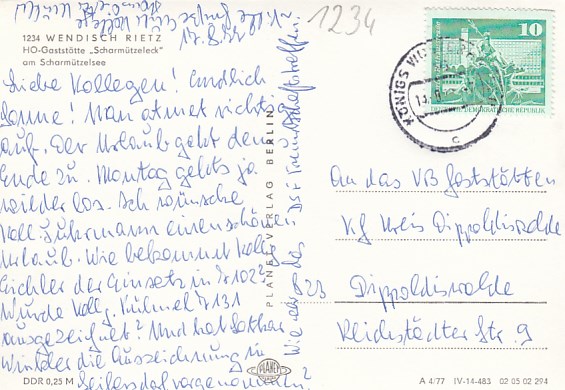 1234 WENDISCH RIETZ
HO-Gaststätte „Scharmützeleck"
am Scharmützelsee
1234
17.8.
10
DEUTSCHE DEMOKRATISCHE REPUBLIK
KÖNIGS
c
Liebe Kollegen! Endlich
Sonne! Man atmet richtig
auf. Der Urlaub geht dem
Ende zu. Montag gehts ja
wieder los. Ich wünsche
Koll. Führmann einen schönen
Urlaub. Wie bekommt Kollg.
Eichler der Einsatz in 102?
Wurde Kollg. Kühnel 131
ausgezeichnet? Und hat Lothar
Winkler die Auszeichnung in
Seifersdorf vorgenommen?
Wie war das DSF Freundschaftstreffen.
PLANET-VERLAG BERLIN
An das VB Gaststätten
Kg Kreis Dippoldiswalde
823 Dippoldiswalde
Reichstädter Str. 9
PLANET
DDR 0,25 M
A 4/77 IV-14-483 02 05 02 294